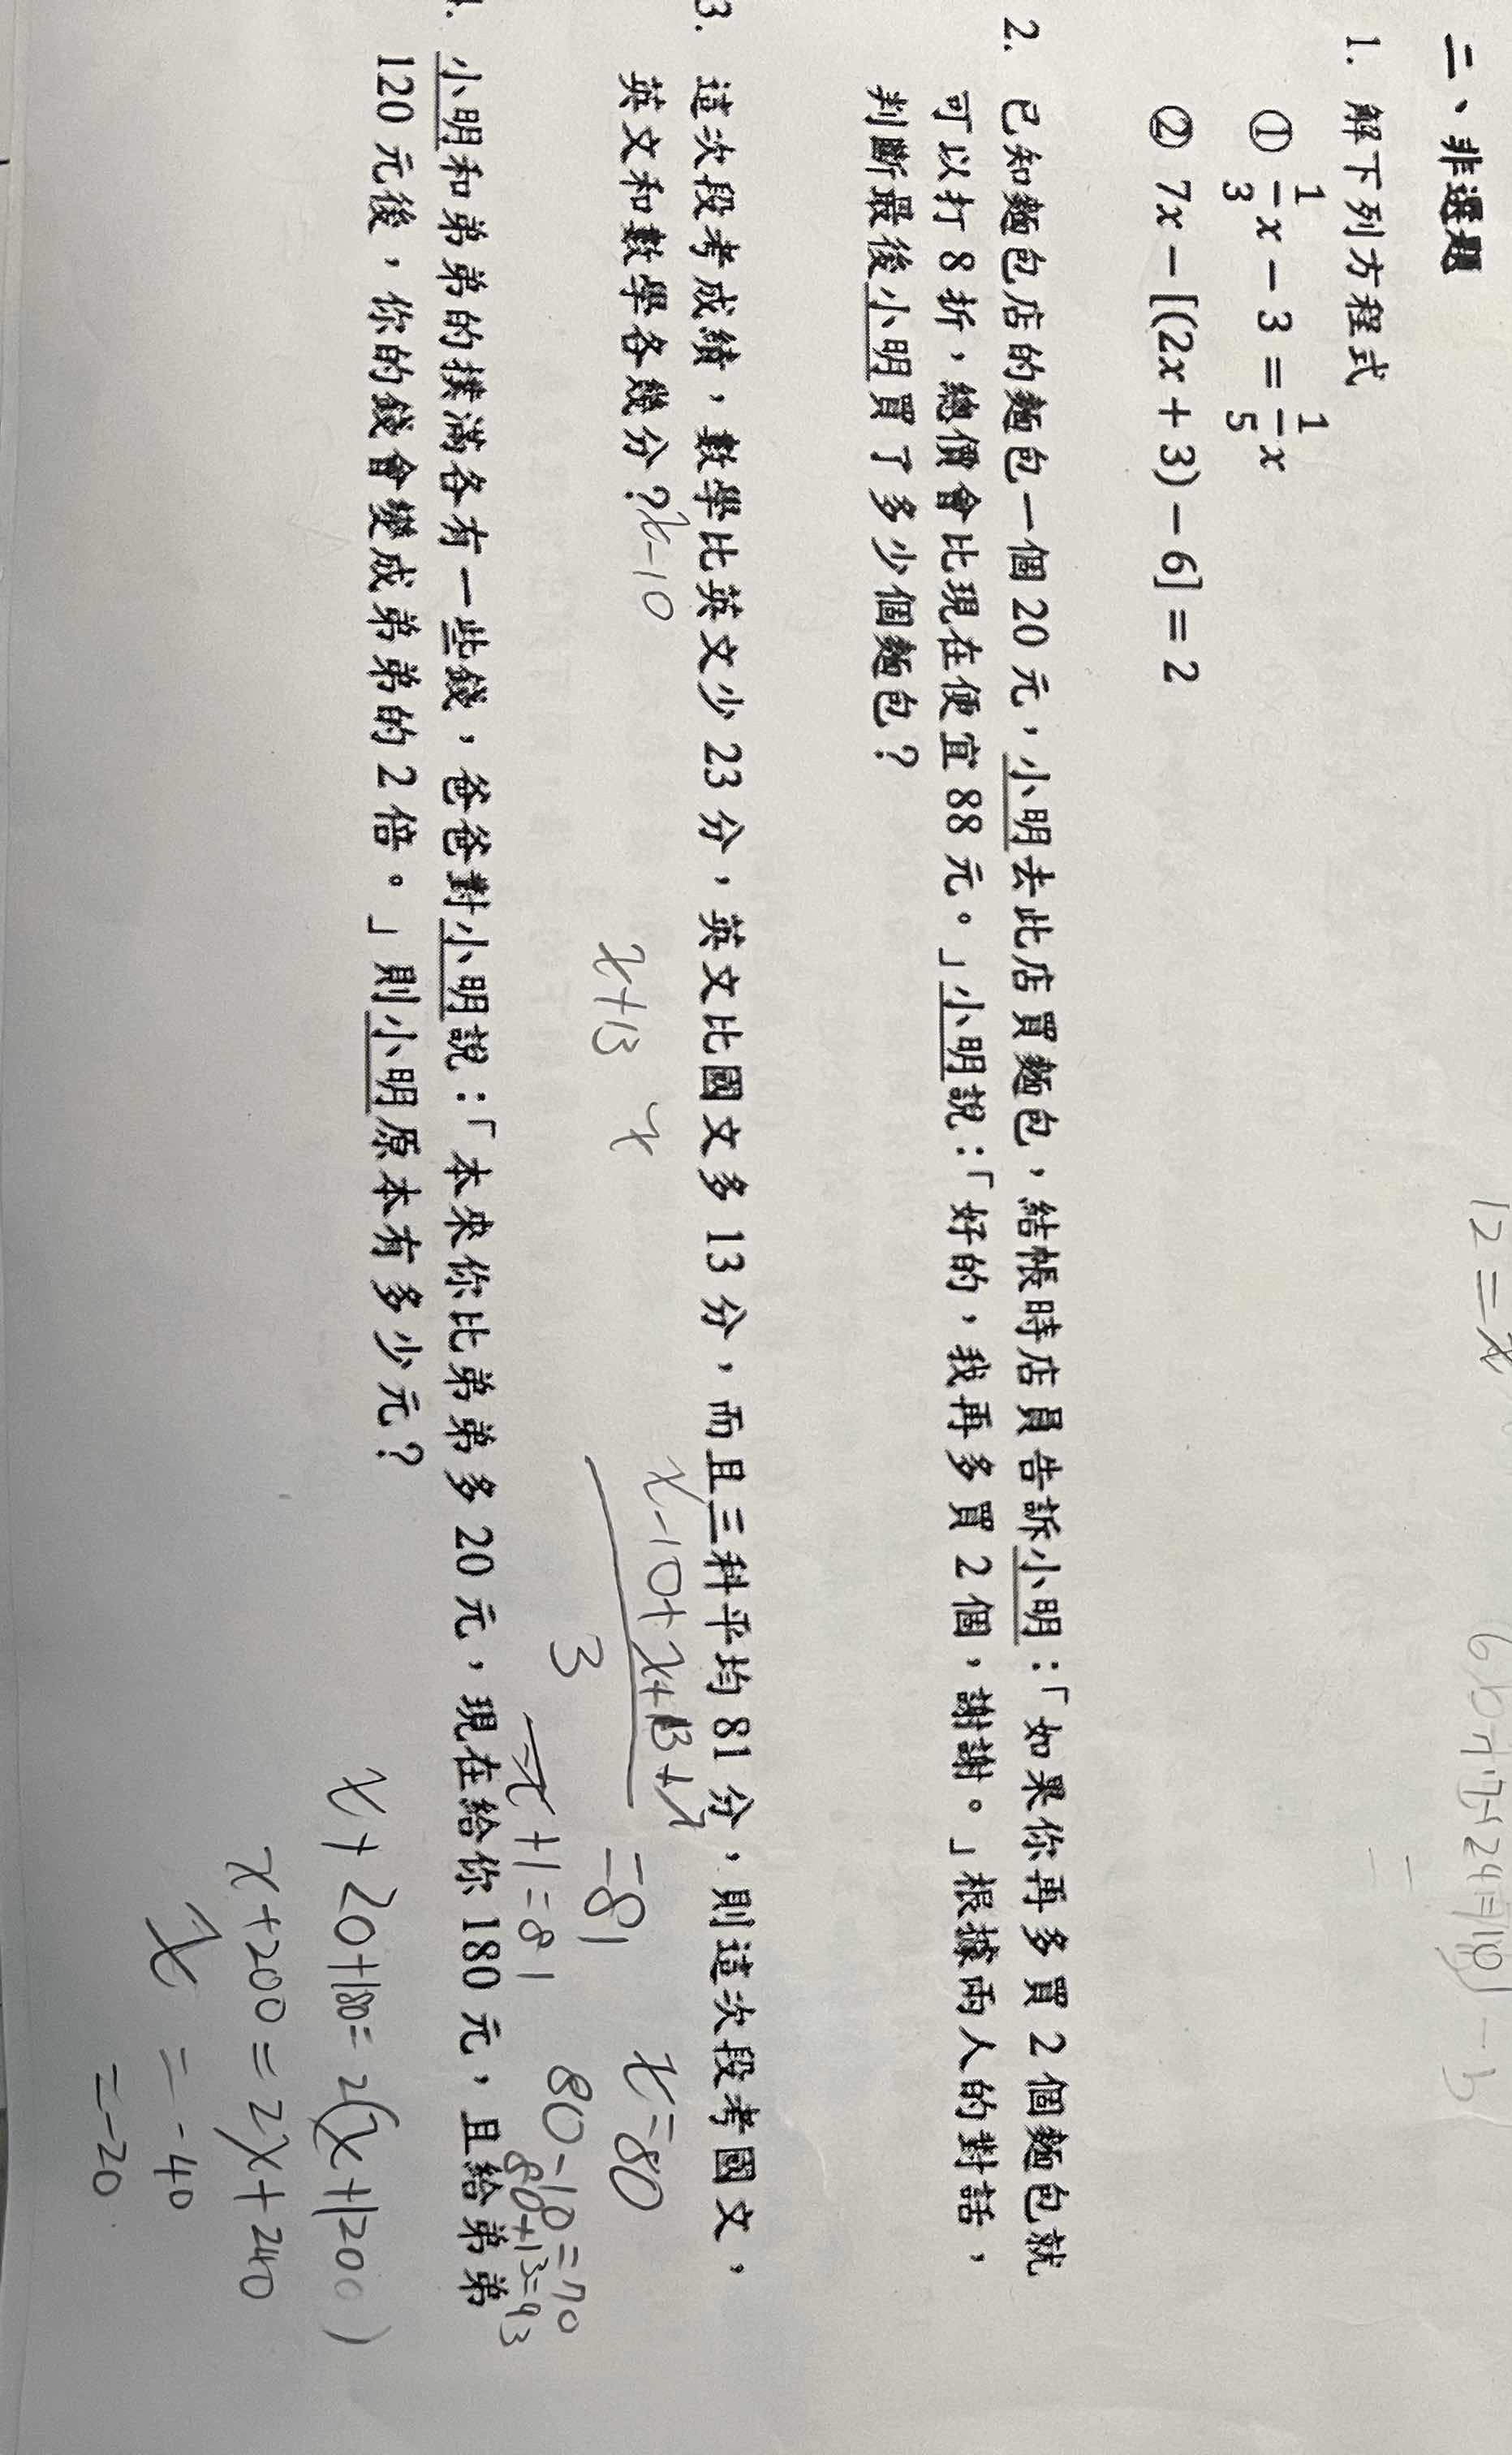 二、非選題
1. 解下列方程式
① 1/3 x − 3 = 1/5 x
② 7x − [(2x + 3) − 6] = 2
12 = x
2. 已知麵包店的麵包一個 20 元，小明去此店買麵包，結帳時店員告訴小明：「如果你再多買 2 個麵包就
可以打 8 折，總價會比現在便宜 88 元。」小明說：「好的，我再多買 2 個，謝謝。」根據兩人的對話，
判斷最後小明買了多少個麵包？
3. 這次段考成績，數學比英文少 23 分，英文比國文多 13 分，而且三科平均 81 分，則這次段考國文、
英文和數學各幾分？
x-10
x+13
x
x-10+x+13+x
3
=81
x=80
x+1=81
80-10=70
80+13=93
4. 小明和弟弟的撲滿各有一些錢，爸爸對小明說：「本來你比弟弟多 20 元，現在給你 180 元，且給弟弟
120 元後，你的錢會變成弟弟的 2 倍。」則小明原本有多少元？
x+20+180=2(x+1200)
x+200=2x+240
x = -40
=-20